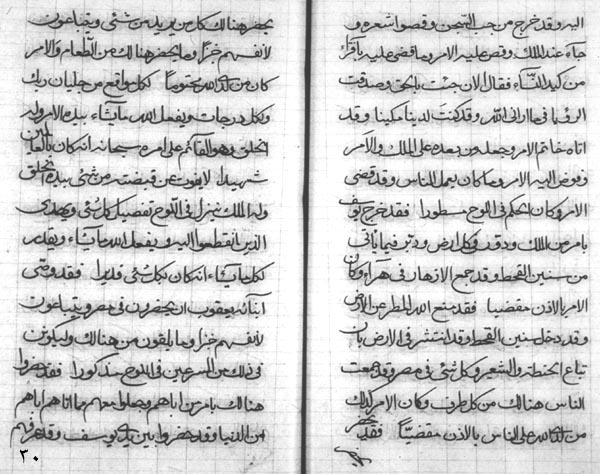 اليه وقد خرج من جب السجن وقصوا شعره و
جاءه عند الملك وقص عليه الامر وما قضى عليه
من كيد النساء فقال الان جئت بالحق وصدقت
الرؤيا في ما ارانى الله وقد كنت لدينا مكينا وقد
اتاه خاتم الامر وجعله من بعده على الملك والامر
وفوض اليه الامر وما كان يعمل الناس وقد قضى
الامر وكان الحكم في اللوح مسطورا فقد خرج يوسف
بامر من الملك ودور في كل ارض ودبر فيما ياتى
من سنين القحط وقد جمع في وكان
الامر بالاذن مقضيا فقد منع الله المطر عن الارض
وقد دخل سنين القحط وقد انتشر في الارض بان
تباع الحنطة والشعير وكل شئ في مصر وقد جمعت
الناس هنالك من كل طرف وكان الامر كذلك
من لدى الله على الناس بالاذن مقضيا فقد
يحضر
يحضر هنالك كل من يريد من شئ ويتباعون
لانفسهم خبزا وما يحضر هنالك من الطعام والامر
كان من لدى الله محتوما لكل واقع من ربك
ولكل درجات ويفعل الله ما يشاء بيده الامر وله
الخلق وهو القائم على امره سبحانه انه كان بالعالمين
شهيدا لا يفوت عن قبضته من شئ بيده الخلق
وله الملك ننزل في اللوح تفصيل كل شئ ويهدى
الذين انقطعوا اليه ويفعل الله ما يشاء ويقدر
لكل ما يشاء انه كان بكل شئ قديرا فقد وصى
ابنائه يعقوب ان يحضرون في مصر ويتباعون
لانفسهم خبزا وما يلقون من هنالك وليكونن
في ذلك من المسرعين في اللوح مذكورا فقد حضروا
هنالك بامر من اباهم وجعلوا معهم مما اتاهم اباهم
من الدنيا وقد حضروا بين يدى يوسف وقد عرفهم
٣٠